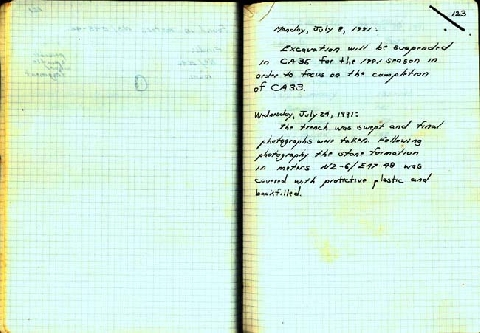 123
Monday, July 8, 1991:
Excavation will be suspended
in CA35 for the 1991 season in
order to focus on the completion
of CA33.
Wednesday, July 24, 1991:
The trench was swept and final
photographs were taken. Following
photography the stone formation
in meters N2-6/E47-48 was
covered with protective plastic and
backfilled.